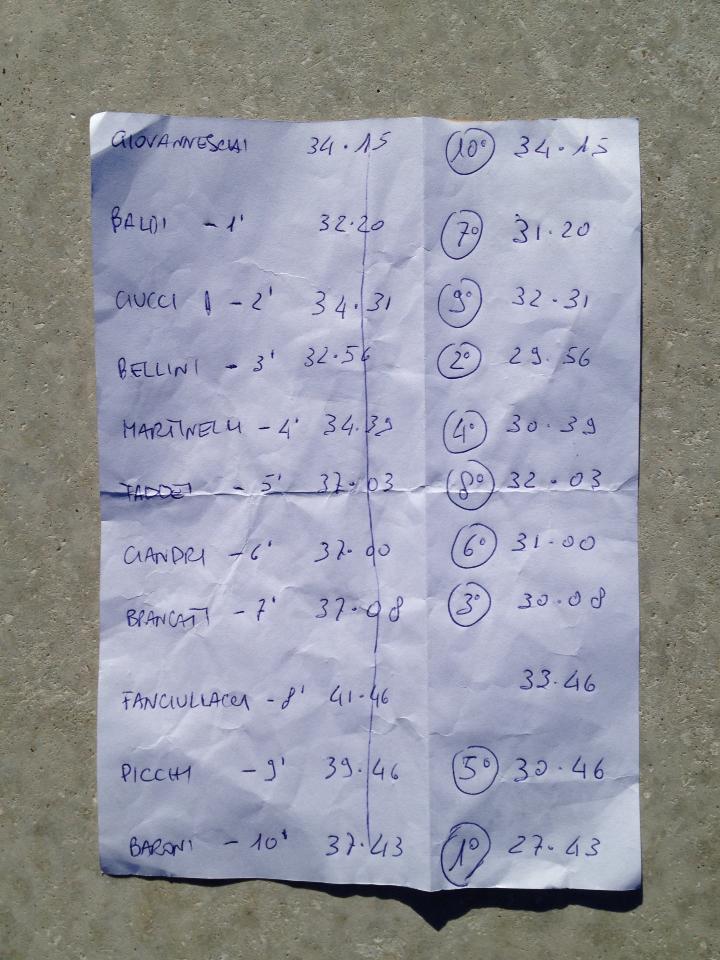 GIOVANNESCHI 34.15 10° 34.15
BALDI - 1' 32.20 7° 31.20
CIUCCI - 2' 34.31 9° 32.31
BELLINI - 3' 32.56 2° 29.56
MARTINELLI - 4' 34.39 4° 30.39
TADDEI - 5' 37.03 8° 32.03
CIANDRI - 6' 37.00 6° 31.00
BRANCATI - 7' 37.08 3° 30.08
FANCIULLACCI - 8' 41.46 33.46
PICCHI - 9' 39.46 5° 30.46
BARONI - 10' 37.43 1° 27.43